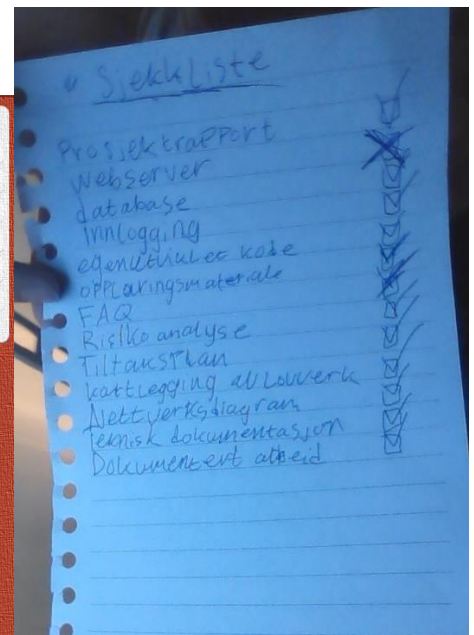 " Sjekkliste
Prosjektrapport
Webserver
database
innlogging
egenutviklet kode
opplæringsmateriale
FAQ
Risikoanalyse
Tiltaksplan
kartlegging av lovverk
Nettverksdiagram
Teknisk dokumentasjon
Dokumentert arbeid